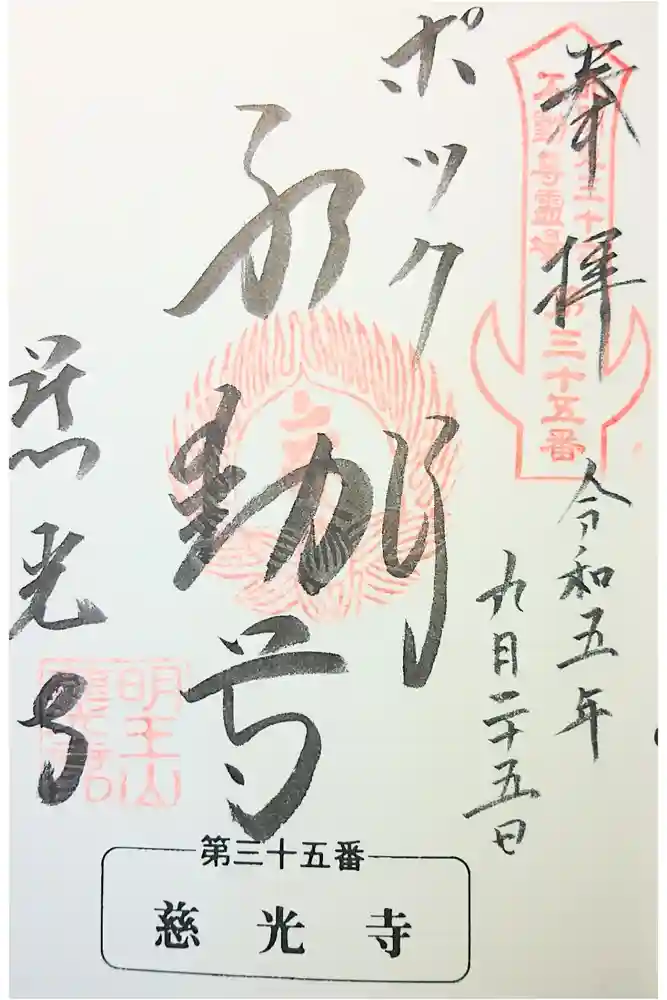 奉拝
不動尊霊場
第三十五番
令和五年
九月二十五日
ポックリ
不動尊
慈光寺
明王山
第三十五番
慈光寺